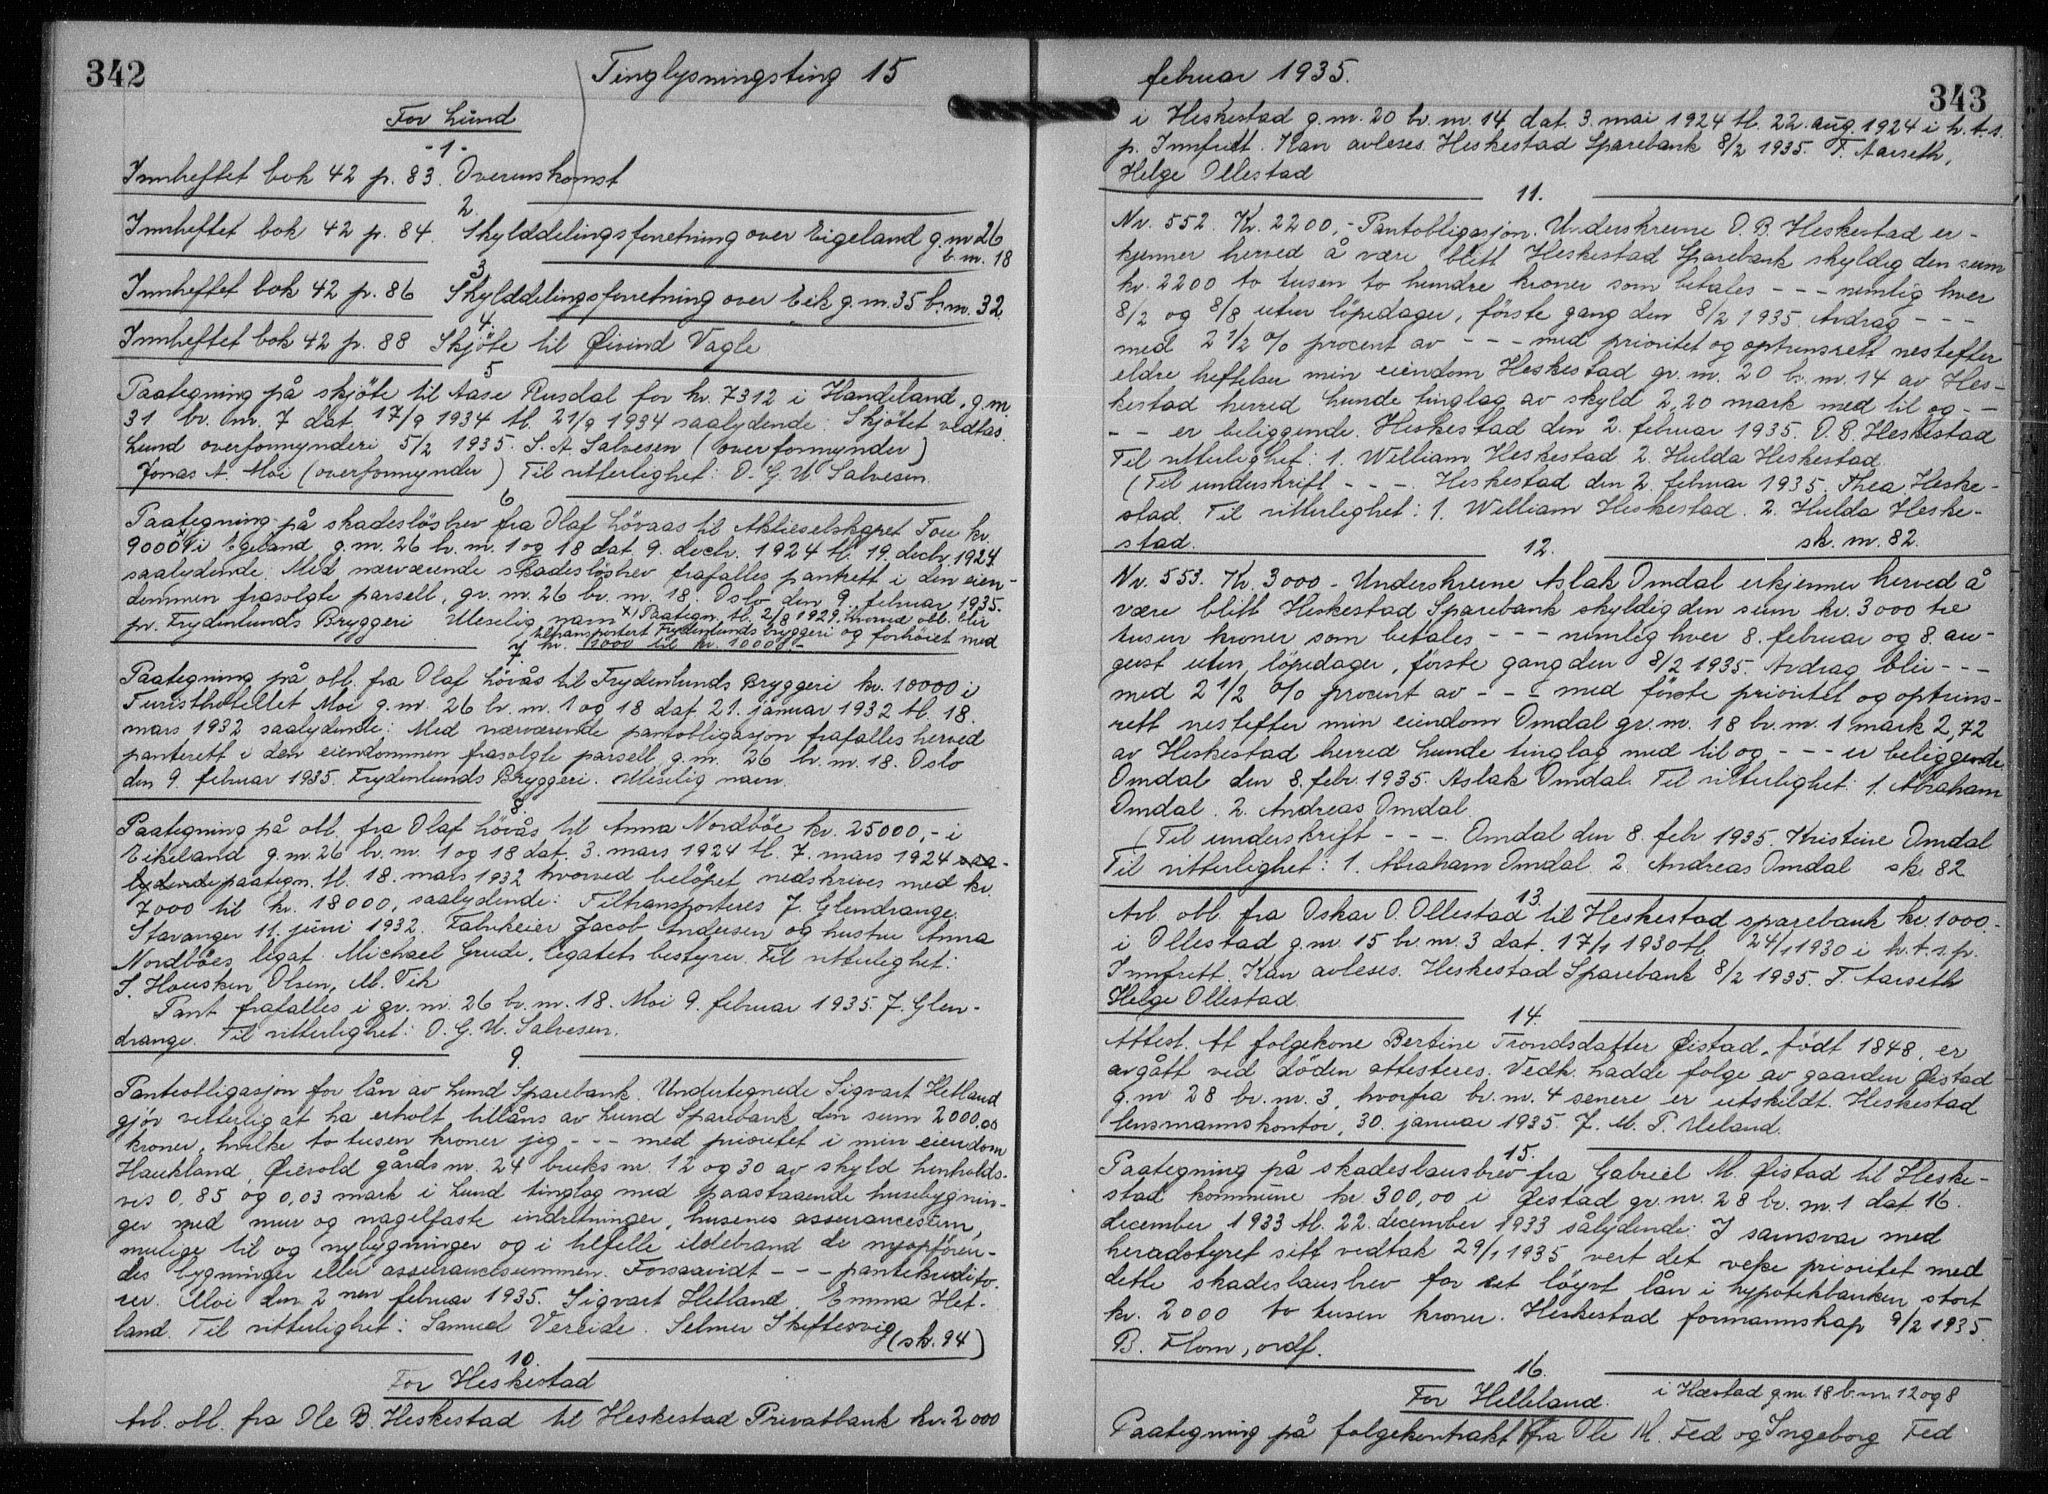 342
Tinglysningsting 15
For Lund
-1-
Innheftet bok 42 p. 83. Overenskomst
2.
Innheftet bok 42 p. 84. Skylddelingsforretning over Eigeland g.nr 26
b.nr. 18
3.
Innheftet bok 42 p. 86 Skylddelingsforretning over Eik g.nr. 35 br.nr. 32.
4.
Innheftet bok 42 p. 88 Skjöte til Øivind Vagle
5
Paategning på skjöte til Aase Rusdal for kr. 7312 i Handeland, g.nr.
31 br. nr. 7 dat. 17/9 1934 tl. 21/9 1934 saalydende: Skjötet vedtas.
Lund overformynderi 5/2 1935. S. A. Salvesen (overformynder)
Jonas A. Moi (overformynder) Til vitterlighet: O. G. U. Salvesen.
6
Paategning på skadeslösbrev fra Olaf Lövaas til Aktieselskapet Tou kr.
9000 x) i Egeland g.nr. 26 br.nr. 1 og 18 dat. 9. decbr. 1924 tl. 19. decbr. 1924
saalydende: Med nærværende skadeslösbrev frafalles pantrett i den eien-
dommen frasolgte parsell, gr.nr. 26 br.nr. 18. Oslo den 9. februar 1935.
pr. Frydenlunds Bryggeri Uleselig navn x) Paategn. tl. 2/8 1929. hvorved obl. blir
tiltransportert Frydenlunds bryggeri og forhöiet med
kr. 1000 til kr. 10000.-
7.
Paategning på obl. fra Olaf Lövås til Frydenlunds Bryggeri kr. 10000 i
Turisthotellet Moi g.nr. 26 br.nr. 1 og 18 dat 21. januar 1932 tl. 18.
mars 1932 saalydende: Med nærværende pantobligasjon frafalles herved
panterett i den eiendommen frasolgte parsell g.nr. 26 br.nr. 18. Oslo
den 9 februar 1935. Frydenlunds Bryggeri. Uleselig navn.
8.
Paategning på obl. fra Olaf Lövås til Anna Nordböe kr. 25000,- i
Eikeland g.nr. 26 br.nr. 1 og 18 dat. 3. mars 1924 tl. 7. mars 1924 saa-
lydende paategn. tl. 18. mars 1932 hvorved belöpet nedskrives med kr.
7000 til kr. 18000, saalydende: Tiltransporteres J. Glendrange.
Stavanger 11. juni 1932. Fabrikeier Jacob Andersen og hustru Anna
Nordböes legat. Michael Grude, legatets bestyrer. Til vitterlighet:
S. Housken Olsen, M. Vik
Pant frafalles i gr.nr. 26 br.nr. 18. Moi 9. februar 1935. J. Glen-
drange. Til vitterlighet: O. G. U. Salvesen.
9.
Panteobligasjon for lån av Lund Sparebank. Undertegnede Sigvart Hetland
gjör vitterlig at ha erholt tillåns av Lund Sparebank den sum 2000,00
kroner, hvilke to tusen kroner jeg - - - med prioritet i min eiendom
Haukland, Öievold gårds nr. 24 bruks nr. 12 og 30 av skyld henholds-
vis 0,85 og 0,03 mark i Lund tinglag med paastaaende husebygnin-
ger med mur og nagelfaste indretninger, husenes assurancesum,
mulige til og nybygninger og i tilfelle ildebrand de nyopfören-
des bygninger eller assurancesummen. Forsaavidt - - - pantekredito-
rer. Moi den 2nen februar 1935. Sigvart Hetland Emma Het-
land. Til vitterlighet: Samuel Vereide. Selmer Skeftesvig (sk. 94)
10.
For Heskestad
Avl. obl. fra Ole B. Heskestad til Heskestad Privatbank kr. 2000
februar 1935.
343
i Heskestad g.nr. 20 br.nr. 14 dat. 3. mai 1924 tl. 22. aug. 1924 i h.t.s.
p. Innfritt. Kan avleses. Heskestad Sparebank 8/2 1935. T. Aarseth,
Helge Ollestad
11.
Nr. 552. Kr. 2200,- Pantobligasjon. Underskrevne O. B. Heskestad er-
kjenner herved å være blitt Heskestad Sparebank skyldig den sum
kr. 2200 to tusen to hundre kroner som betales - - - nemlig hver
8/2 og 8/8 uten löpedager, förste gang den 8/2 1935. Avdrag - - -
med 2 1/2 % procent av - - - med prioritet og optrinsrett nestefter
eldre heftelser min eiendom Heskestad gr.nr. 20 br.nr. 14 av Hes-
kestad herred Lunde tinglag av skyld 2,20 mark med til og - -
- - er beliggende. Heskestad den 2. februar 1935. O. B. Heskestad
Til vitterlighet: 1. William Heskestad 2. Hulda Heskestad.
(Til underskrift - - -. Heskestad den 2. februar 1935. Thea Heske-
stad. Til vitterlighet: 1. William Heskestad. 2. Hulda Heske-
stad. sk. nr. 82.
12.
Nr. 553. Kr. 3000 - Underskrevne Aslak Omdal erkjenner herved å
være blitt Heskestad Sparebank skyldig den sum kr. 3000 tre
tusen kroner som betales - - - nemlig hver 8. februar og 8. au-
gust uten löpedager, förste gang den 8/2 1935. Avdrag blir - - -
med 2 1/2 % procent av - - - med förste prioritet og optrins-
rett nestefter min eiendom Omdal gr.nr. 18 br.nr. 1 mark 2,72
av Heskestad herred Lunde tinglag med til og - - - er beliggende
Omdal den 8. febr. 1935. Aslak Omdal. Til vitterlighet: 1. Abraham
Omdal. 2. Andreas Omdal.
(Til underskrift - - -. Omdal den 8. febr 1935. Kristine Omdal
Til vitterlighet: 1. Abraham Omdal. 2. Andreas Omdal sk. 82
13.
Avl. obl. fra Oskar O. Ollestad til Heskestad sparebank kr. 1000.-
i Ollestad g.nr. 15 br.nr. 3 dat. 17/1 1930 tl. 24/1 1930 i h.t.s.p.
Innfritt. Kan avleses. Heskestad Sparebank 8/2 1935. T. Aarseth
Helge Ollestad.
14.
Attest. At folgekone Bertine Trondsdatter Øistad, födt 1848, er
avgått ved döden attesteres. Vedk. hadde folge av gaarden Øistad
g.nr 28 br.nr. 3, hvorfra br.nr. 4 senere er utskildt. Heskestad
lensmannskontor, 30. januar 1935. J. M. P. Ueland.
15.
Paategning på skadeslausbrev fra Gabriel M. Øistad til Heske-
stad kommune kr. 300,00 i Øistad gr.nr. 28 br.nr. 1 dat 16.
december 1933 tl. 22. december 1933 sålydende: I samsvar med
heradstyret sitt vedtak 29/1 1935 vert det veke prioritet med
dette skadeslausbrev for eit löyvt lån i hypotekbanken stort
kr. 2000 to tusen kroner. Heskestad formannskap 9/2 1935.
B. Flom, ordf.
16.
For Helleland. i Hæstad g.nr. 18 b.nr. 12 og 8
Paategning på folgekontrakt fra Ole M. Fed og Ingeborg Fed